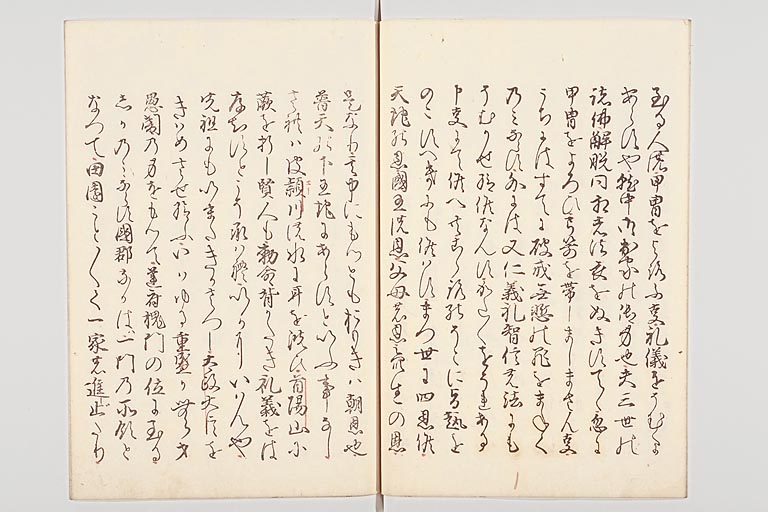 至る人の甲冑をよろふ事礼儀をそむくに
あらすや就中御出家の御身也夫三世の
諸佛解脱同相の法衣をぬきすてゝ忽に
甲冑をよろひ弓箭を帯しましまさん事
うちにはすてに破戒無慙の罪をまねく
のみならす外には又仁義礼智信の法にも
そむかせ給候なんすかた〳〵をそれある
申事にて候へ共こゝろのそこに旨趣を
のこすへきにも候はすまつ世に四恩候
天地の恩國王の恩父母の恩衆生の恩
是なり其中にもつともおもきは朝恩也
普天の下王地にあらすといふ事なし
されは彼頴川の水に耳を洗ひ首陽山に
蕨を折し賢人も勅命背かたき礼義をは
存知すとこそ承はれ いはんや
先祖にもいまたきかさつし太政大臣を
きはめさせ給ふいはゆる重盛か無才
愚闇の身をもつて蓮府槐門の位に至る
しかのみならす國郡なかは一門の所領と
なつて田園こと〳〵く一家の進止たり